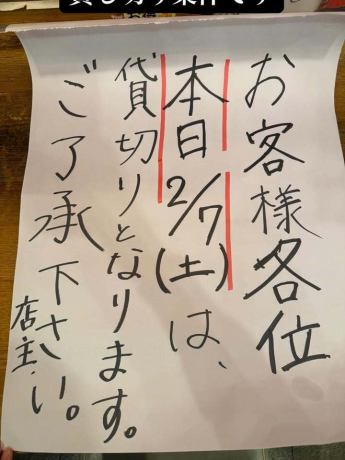 お客様各位
本日2/7(土)は、
貸切りとなります。
ご了承下さい。
店主.